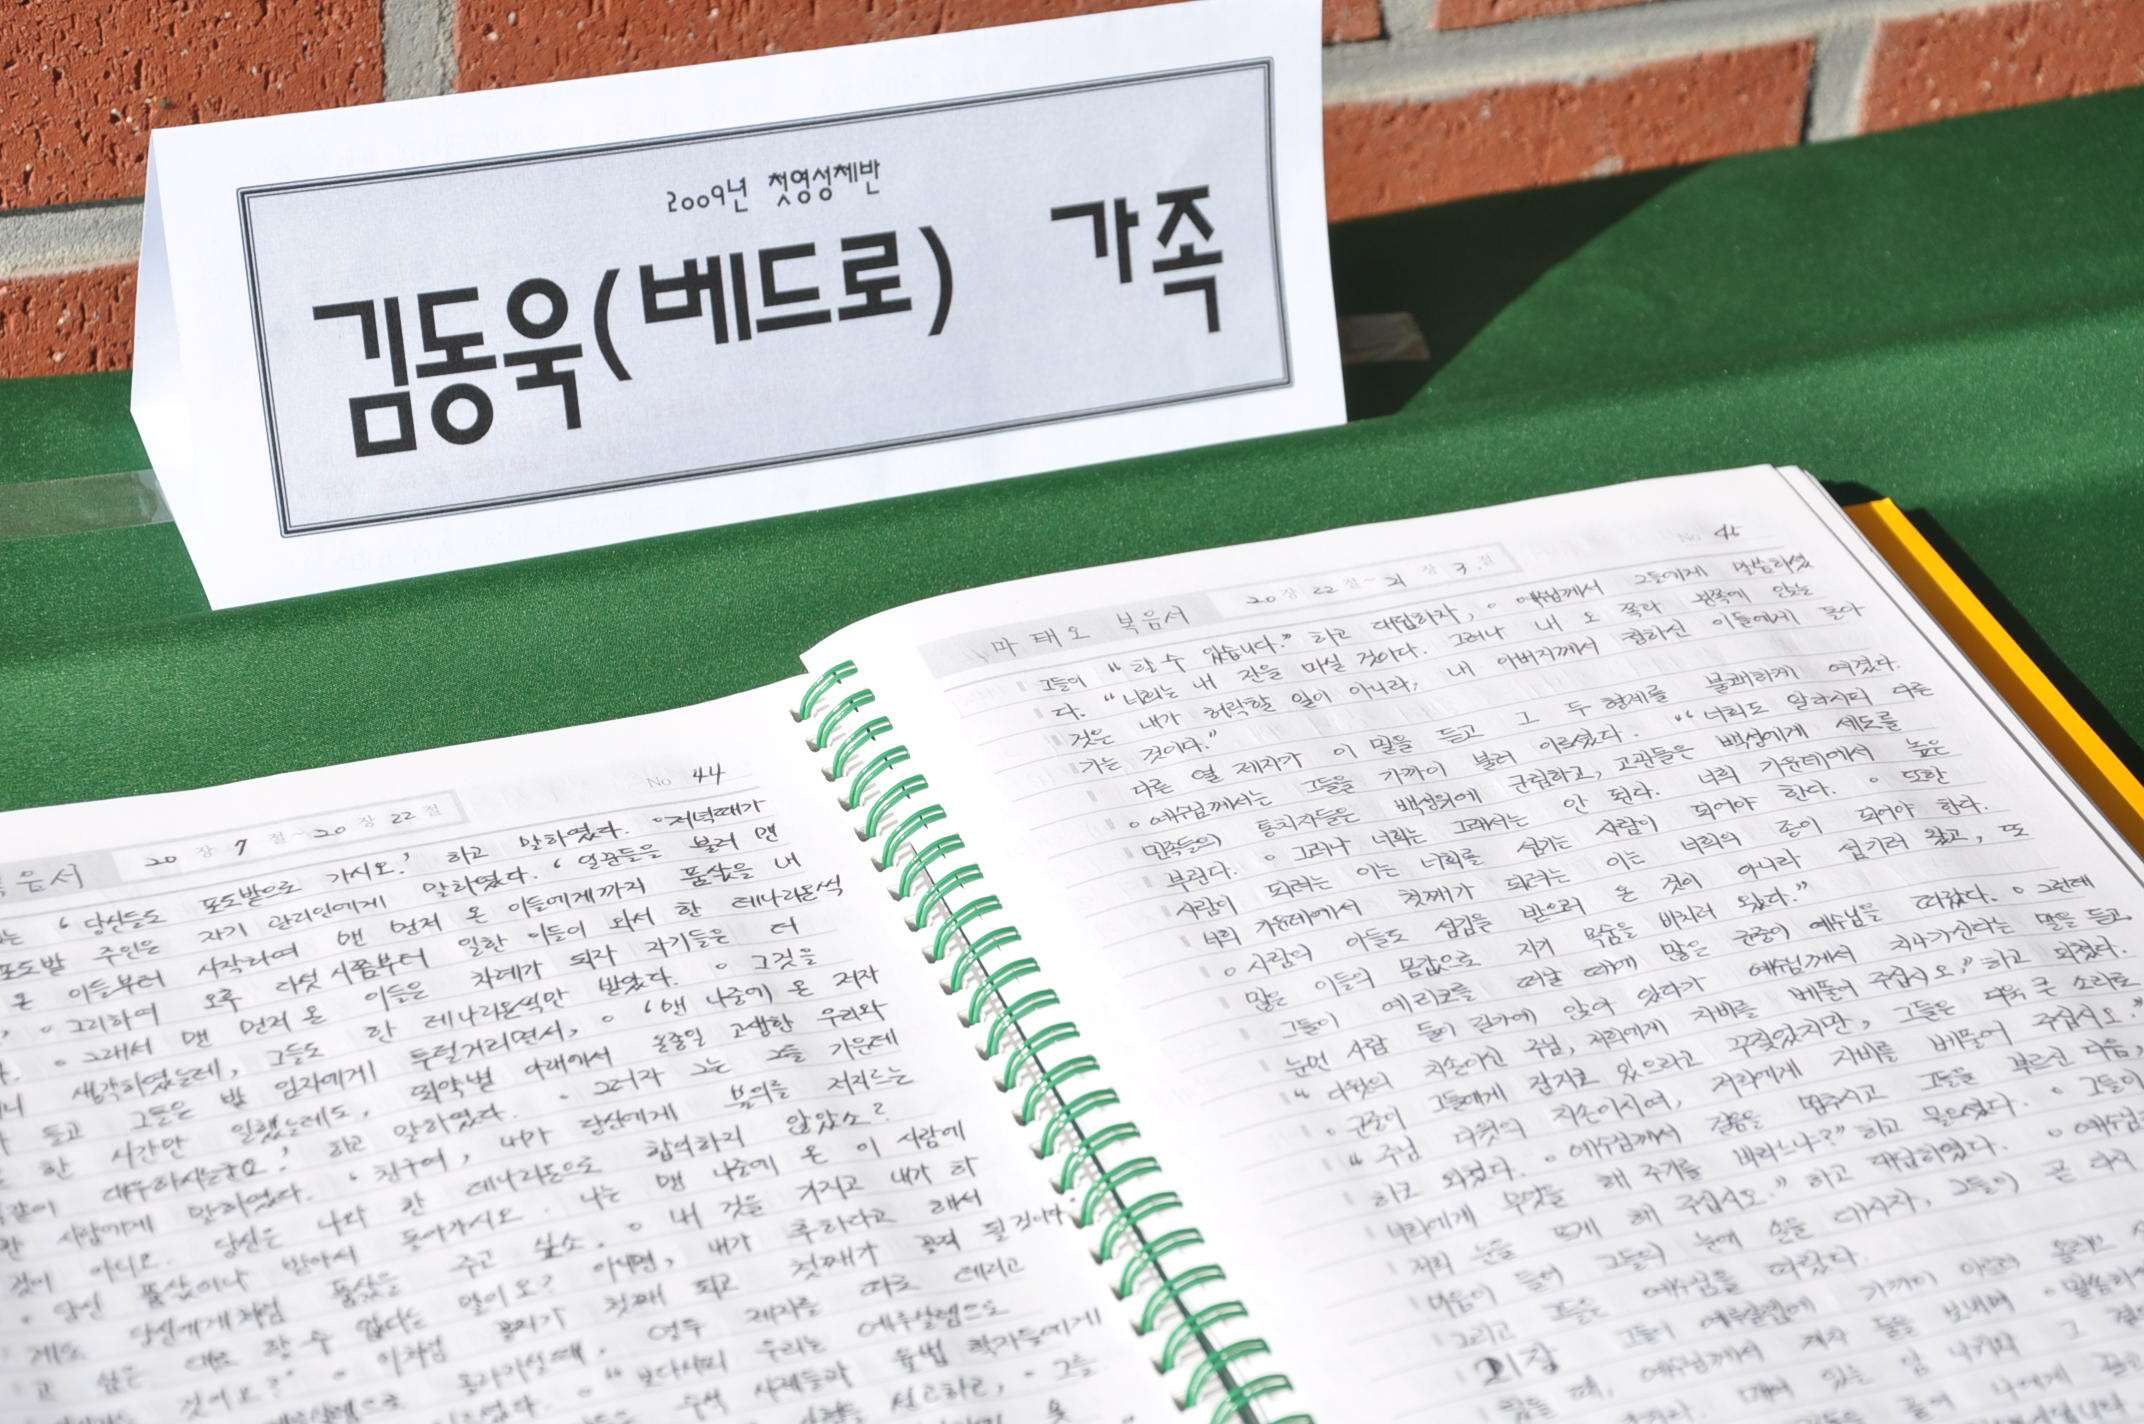 2009년 첫영성체반
김동욱(베드로) 가족
No 44
음서 20 장 7 절~20 장 22 절
‘당신들도 포도밭으로 가시오.’ 하고 말하였다. °저녁때가
포도밭 주인은 자기 관리인에게 말하였다. ‘일꾼들을 불러 맨
온 이들부터 시작하여 맨 먼저 온 이들에게까지 품삯을 내
°그리하여 오후 다섯 시쯤부터 일한 이들이 와서 한 데나리온씩
°그래서 맨 먼저 온 이들은 차례가 되자 자기들은 더
생각하였는데, 그들도 한 데나리온씩만 받았다. °그것을
듣고 그들은 밭 임자에게 투덜거리면서, °‘맨 나중에 온 저자
한 시간만 일했는데도, 뙤약볕 아래에서 온종일 고생한 우리와
같이 대우하시는군요.’ 하고 말하였다. °그러자 그는 그들 가운데
한 사람에게 말하였다. ‘친구여, 내가 당신에게 불의를 저지르는
것이 아니오. 당신은 나와 한 데나리온으로 합의하지 않았소?
°당신 품삯이나 받아서 돌아가시오. 나는 맨 나중에 온 이 사람에
게도 당신에게처럼 품삯을 주고 싶소. °내 것을 가지고 내가 하
고 싶은 대로 할 수 없다는 말이오? 아니면, 내가 후하다고 해서
것이오?’ °이처럼 꼴찌가 첫째 되고 첫째가 꼴찌 될 것이다.
올라가실 때, 열두 제자를 따로 데리고
°“보다시피 우리는 예루살렘으로
수석 사제들과 율법 학자들에게
No 45
마태오 복음서 20 장 22 절~ 21 장 3 절
그들이 “할 수 있습니다.” 하고 대답하자, °예수님께서 그들에게 말씀하셨
다. “너희는 내 잔을 마실 것이다. 그러나 내 오른쪽과 왼쪽에 앉는
것은 내가 허락할 일이 아니라, 내 아버지께서 정하신 이들에게 돌아
가는 것이다.”
다른 열 제자가 이 말을 듣고 그 두 형제를 불쾌하게 여겼다.
°예수님께서는 그들을 가까이 불러 이르셨다. “너희도 알다시피 다른
민족들의 통치자들은 백성위에 군림하고, 고관들은 백성에게 세도를
부린다. °그러나 너희는 그래서는 안 된다. 너희 가운데에서 높은
사람이 되려는 이는 너희를 섬기는 사람이 되어야 한다. °또한
너희 가운데에서 첫째가 되려는 이는 너희의 종이 되어야 한다.
°사람의 아들도 섬김을 받으러 온 것이 아니라 섬기러 왔고, 또
많은 이들의 몸값으로 자기 목숨을 바치러 왔다.”
그들이 예리코를 떠날 때에 많은 군중이 예수님을 따랐다. °그런데
눈먼 사람 둘이 길가에 앉아 있다가 예수님께서 지나가신다는 말을 듣고,
“다윗의 자손이신 주님, 저희에게 자비를 베풀어 주십시오.” 하고 외쳤다.
°군중이 그들에게 잠자코 있으라고 꾸짖었지만, 그들은 더욱 큰 소리로
“주님 다윗의 자손이시여, 저희에게 자비를 베풀어 주십시오.”
하고 외쳤다. °예수님께서 걸음을 멈추시고 그들을 부르신 다음,
너희에게 무엇을 해 주기를 바라느냐?” 하고 물으셨다. °그들이
저희 눈을 뜨게 해 주십시오.” 하고 대답하였다. °예수님
마음이 들어 그들의 눈에 손을 대시자, 그들이 곧 다시
그리고 그들은 예수님을 따랐다.
21장 그들이 예루살렘에 가까이 이르러 올리브
때, 예수님께서 제자 둘을 보내며 °말씀하
매여 있는 암 나귀와 그